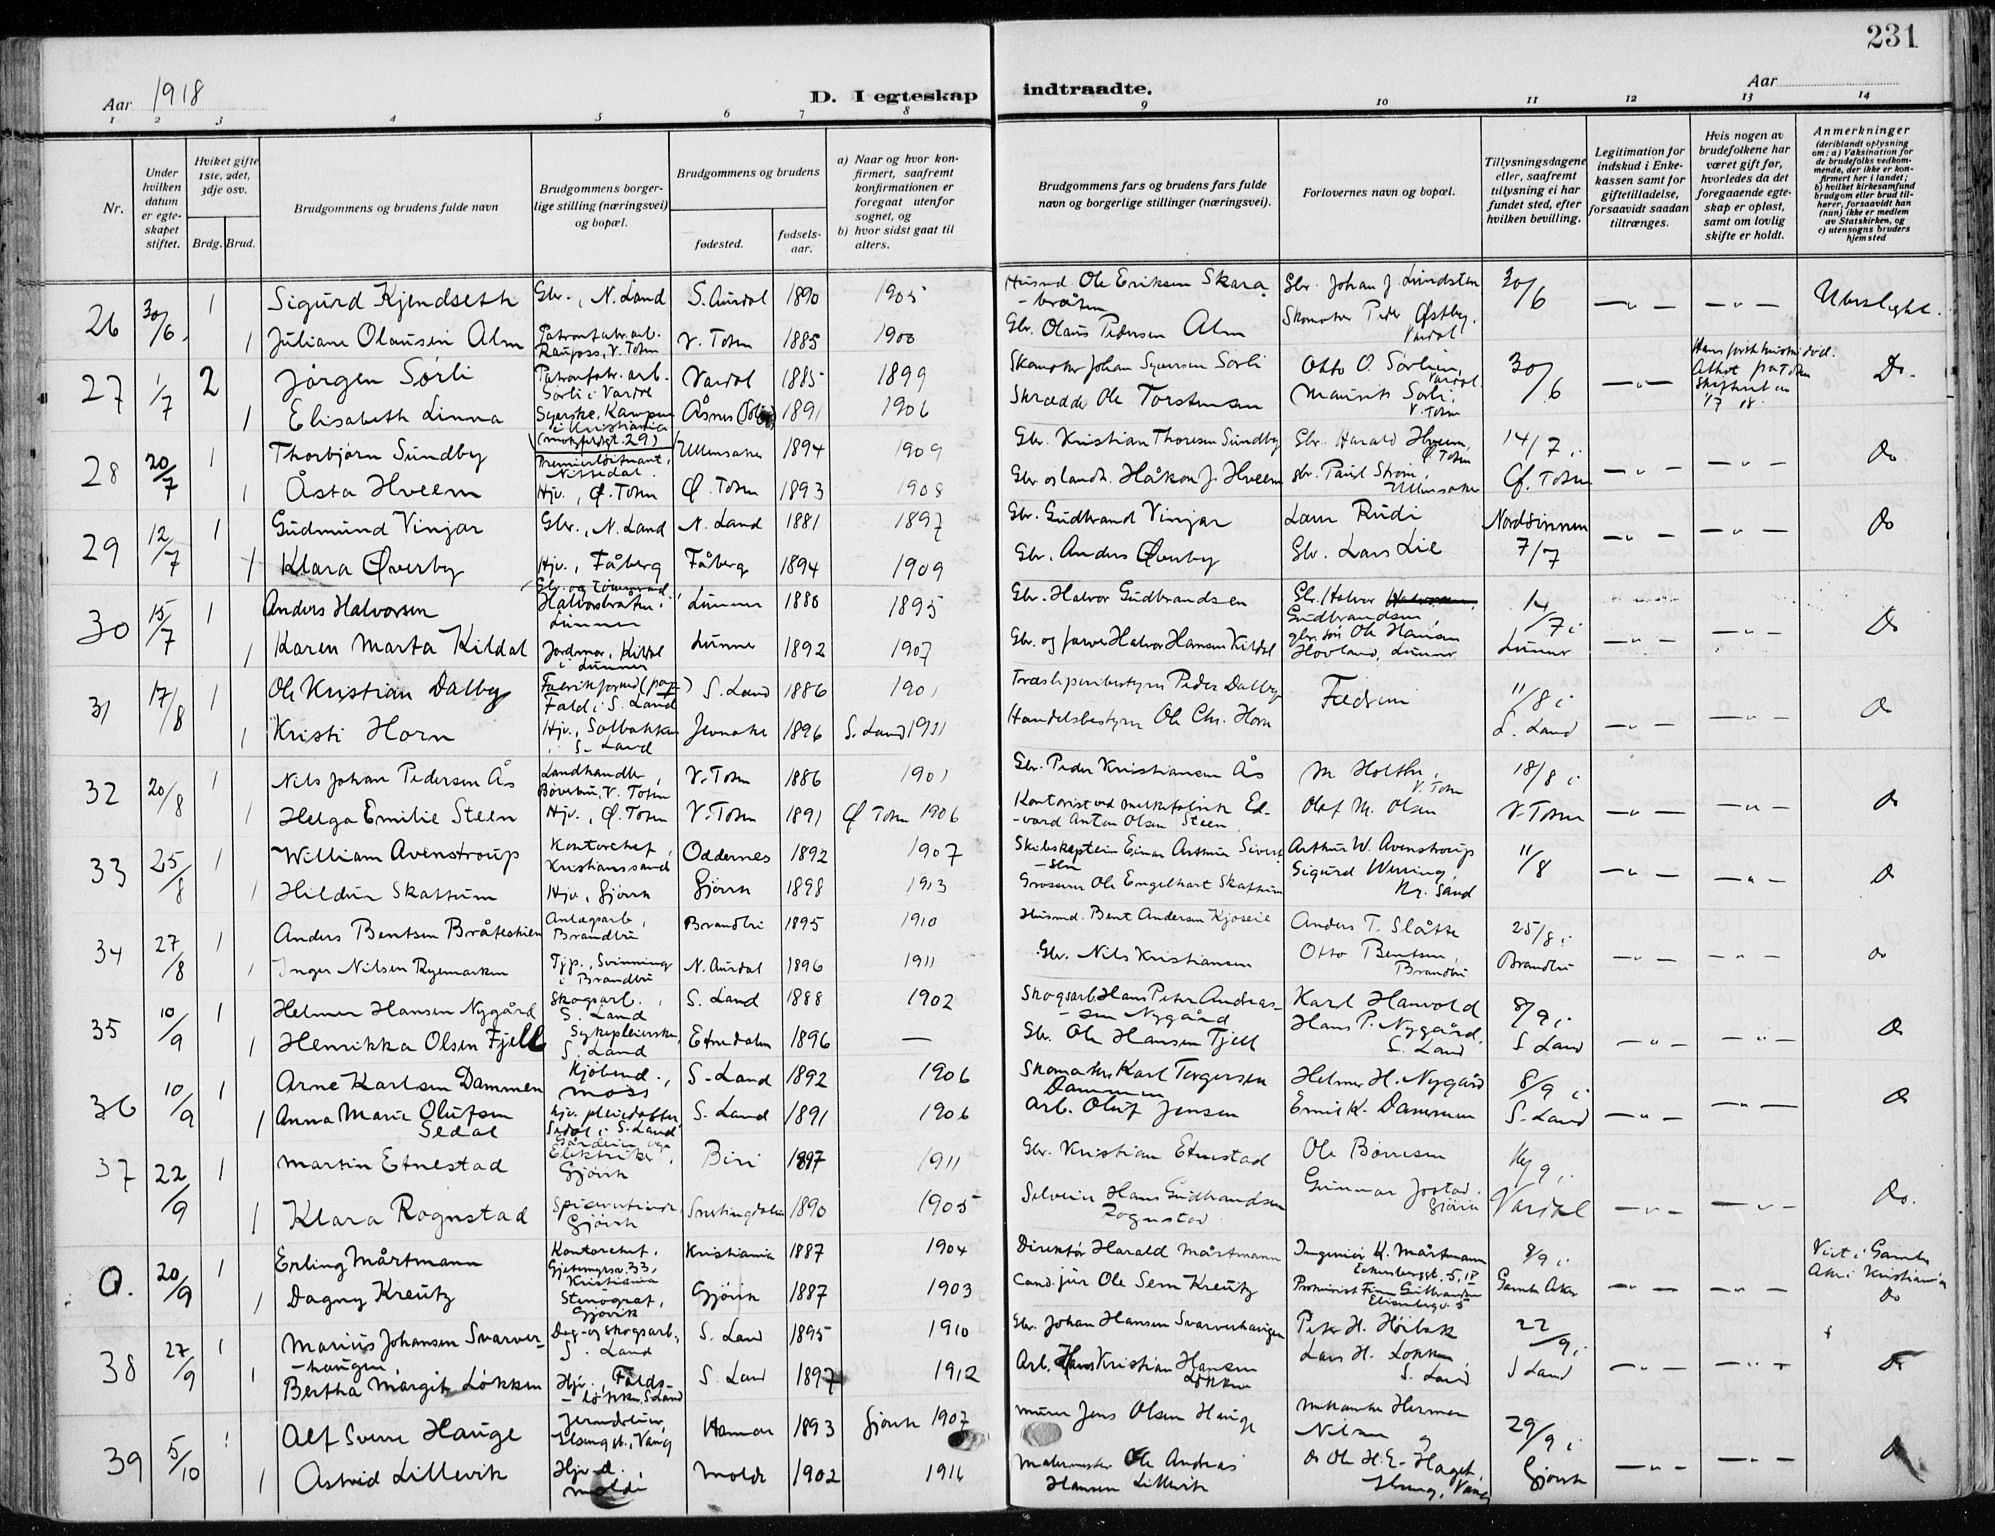 231
Aar 1918
D. I egteskap
indtraadte.
Aar
1 2 3 4 5 6 7 8 9 10 11 12 13 14
Nr.
Under hvilken datum er egteskapet stiftet.
Hviket gifte 1ste, 2det, 3dje osv.
Brdg. Brud.
Brudgommens og brudens fulde navn
Brudgommens borgerlige stilling (næringsvei) og bopæl.
Brudgommens og brudens
fødested.
fødselsaar.
a) Naar og hvor konfirmert, saafremt konfirmationen er foregaat utenfor sognet, og
b) hvor sidst gaat til alters.
Brudgommens fars og brudens fars fulde navn og borgerlige stillinger (næringsvei).
Forlovernes navn og bopæl.
Tillysningsdagene eller, saafremt tillysning ei har fundet sted, efter hvilken bevilling.
Legitimation for indskud i Enkekassen samt for giftetilladelse, forsaavidt saadan tiltrænges.
Hvis nogen av brudefolkene har været gift før, hvorledes da det foregaaende egteskap er opløst, samt om lovlig skifte er holdt.
Anmerkninger (deriblandt oplysning om: a) Vaksination for de brudefolks vedkommende, der ikke er konfirmert her i landet; b) hvilket kirkesamfund brudgom eller brud tilhører, forsaavidt han (hun) ikke er medlem av Statskirken, og c) utensogns bruders hjemsted
26 30/6 1 Sigurd Kjendseth Gbr., N. Land S. Aurdal 1890 1905 Husmd Ole Eriksen Skara-bråten Gbr. Johan J. Lundsten 30/6 Ubeslegt.
1 Juliane Olausen Alm Patronfabr.arb. Raufoss, V. Toten V. Toten 1885 1900 Gbr. Olaus Pedersen Alm Skomaker Peder Østby, Vardal
27 1/7 2 Jörgen Sörli Patronfabr.arb. Sörli i Vardal Vardal 1885 1899 Skomaker Johan Syversen Sörli Otto O. Sörlien, Vardal 30/6 Do.
1 Elisabeth Linna Syerske, Kampen i Kristiania Åsnes (Solør) 1891 1906 Skrædder Ole Torstensen Maurits Sörli, V. Toten
28 20/7 1 Thorbjørn Sundby Premierløitnant, Nittedal Ullensaker 1894 1909 Gbr. Kristian Thoresen Sundby Gbr. Harald Hveem, Ø. Toten 14/7 i Do
1 Åsta Hveem Hjv., Ø. Toten Ø. Toten 1893 1908 Gbr. og landh. Håkon J. Hveem gbr. Paul Strøm, Ullensaker Ø. Toten
29 12/7 1 Gudmund Vinjar Gbr., N. Land N. Land 1881 1897 Gbr. Gudbrand Vinjar Lars Rudi Nordsinnen Do
1 Klara Øverby Hjv., Fåberg Fåberg 1894 1909 Gbr. Anders Øverby Gbr. Lars Lie 7/7
30 15/7 1 Anders Halvorsen Gbr. og tømmermd. Halvorsbråten i Lunner Lunner 1880 1895 Gbr. Halvor Gudbrandsen Gbr. Halvor Gudbrandsen, 14/7 i Do
1 Karen Marta Kildal Jordmor, Kildal i Lunner Lunner 1892 1907 Gbr. og farver Halvor Hansen Kildal gbr.søn Ole Hansen Hovland, Lunner Lunner
31 17/8 1 Ole Kristian Dalby Fabrikformd (pap-) Fald i S. Land S. Land 1886 1901 Træsliperibestyrer Peder Dalby Fædrene 11/8 i Do
1 Kristi Horn Hjv., Solbakken i S. Land Jevnaker 1896 S. Land 1911 Handelsbestyrer Ole Chr. Horn S. Land
32 20/8 1 Nils Johan Pedersen Ås Landhandler, Böverbru, V. Toten V. Toten 1886 1901 Gbr. Peder Kristiansen Ås M Holthe, V. Toten 18/8 i Do
1 Helga Emilie Steen Hjv., Ø. Toten V. Toten 1891 Ø Toten 1906 Kontorist ved melkefabrik Ed-vard Anton Olsen Steen Olaf M. Olsen V. Toten
33 25/8 1 William Avenstroup Kontorchef, Kristianssand Oddernes 1892 1907 Skibskaptein Einar Arthur Sivert-sen Arthur W. Avenstroup 11/8 Do
1 Hildur Skattum Hjv., Gjövik Gjövik 1898 1913 Grosserer Ole Engelhart Skattum Sigurd Wirring, Kr. Sand
34 27/8 1 Anders Bentsen Bråtestien Anlægsarb., Brandbu Brandbu 1895 1910 Husmd. Bent Andersen Kjoseie Anders T. Slåtte 25/8 i Do
1 Inger Nilsen Ryemarken Tjp., Svinning i Brandbu N. Aurdal 1896 1911 Gbr. Nils Kristiansen Otto Bentsen, Brandbu Brandbu
35 10/9 1 Helmer Hansen Nygård Skogsarb., S. Land S. Land 1888 1902 Skogsarb. Hans Peter Andreas-sen Nygård Karl Hanvold 8/9 i Do
1 Henrikka Olsen Fjell Sykepleierske, S. Land Etnedalen 1896 — Gbr. Ole Hansen Fjell Hans P. Nygård, S. Land S Land
36 10/9 1 Arne Karlsen Dammen Kjøbmd., Moss S. Land 1892 1906 Skomaker Karl Torgersen Dammen Helmer H. Nygård 8/9 i Do
1 Anna Marie Olufsen Sedal Hjv. pleiedatter Sedal i S. Land S. Land 1891 1906 Arb. Oluf Jensen Emil K. Dammen S. Land
37 22/9 1 Martin Etnestad Elektriker, Gjövik Biri 1897 1911 Gbr. Kristian Etnestad Ole Börresen 9 i Do.
1 Klara Rognstad Gjövik Snertingdalen 1890 1905 Hans Gudbrandsen Rognstad Gunnar Jostad, Gjövik Vardal
0. 20/9 1 Erling Mårtmann Kontorchef, Gjetemyrsv. 33, Kristiania Kristiania 1887 1904 Direktör Harald Mårtmann Ingeniör K. Mårtmann Eckersbergsgt. 5, IV 8/9 i Viet i Gamle Aker i Kristiania
1 Dagny Kreutz Stenograf, Gjövik Gjövik 1887 1903 Cand. jur Ole Sem Kreutz Prokurist Finn Gulbrandsen Elisenbergv. 5 Gamle Aker Do
38 27/9 1 Marius Johansen Svarver-haugen Dag- og skogsarb., S. Land S. Land 1895 1910 Gbr. Johan Hansen Svarverhaugen Peter H. Höibak 22/9 i
1 Bertha Margit Løkken Hjv., Falds-løkken, S. Land S. Land 1897 1912 Arb. Hans Kristian Hansen Løkken Lars H. Løkken, S. Land S Land Do
39 5/10 1 Alf Sverre Hauge Vang Hamar 1893 Gjövik 1907 Murer Jens Olsen Hauge Herman Nilsen og 29/9 i Do
1 Astrid Lillevik Hjv.d. Molde Molde 1902 1916 Malermester Ole Andreas Hansen Lillevik do Ole H.E. Haget, Vang Gjövik